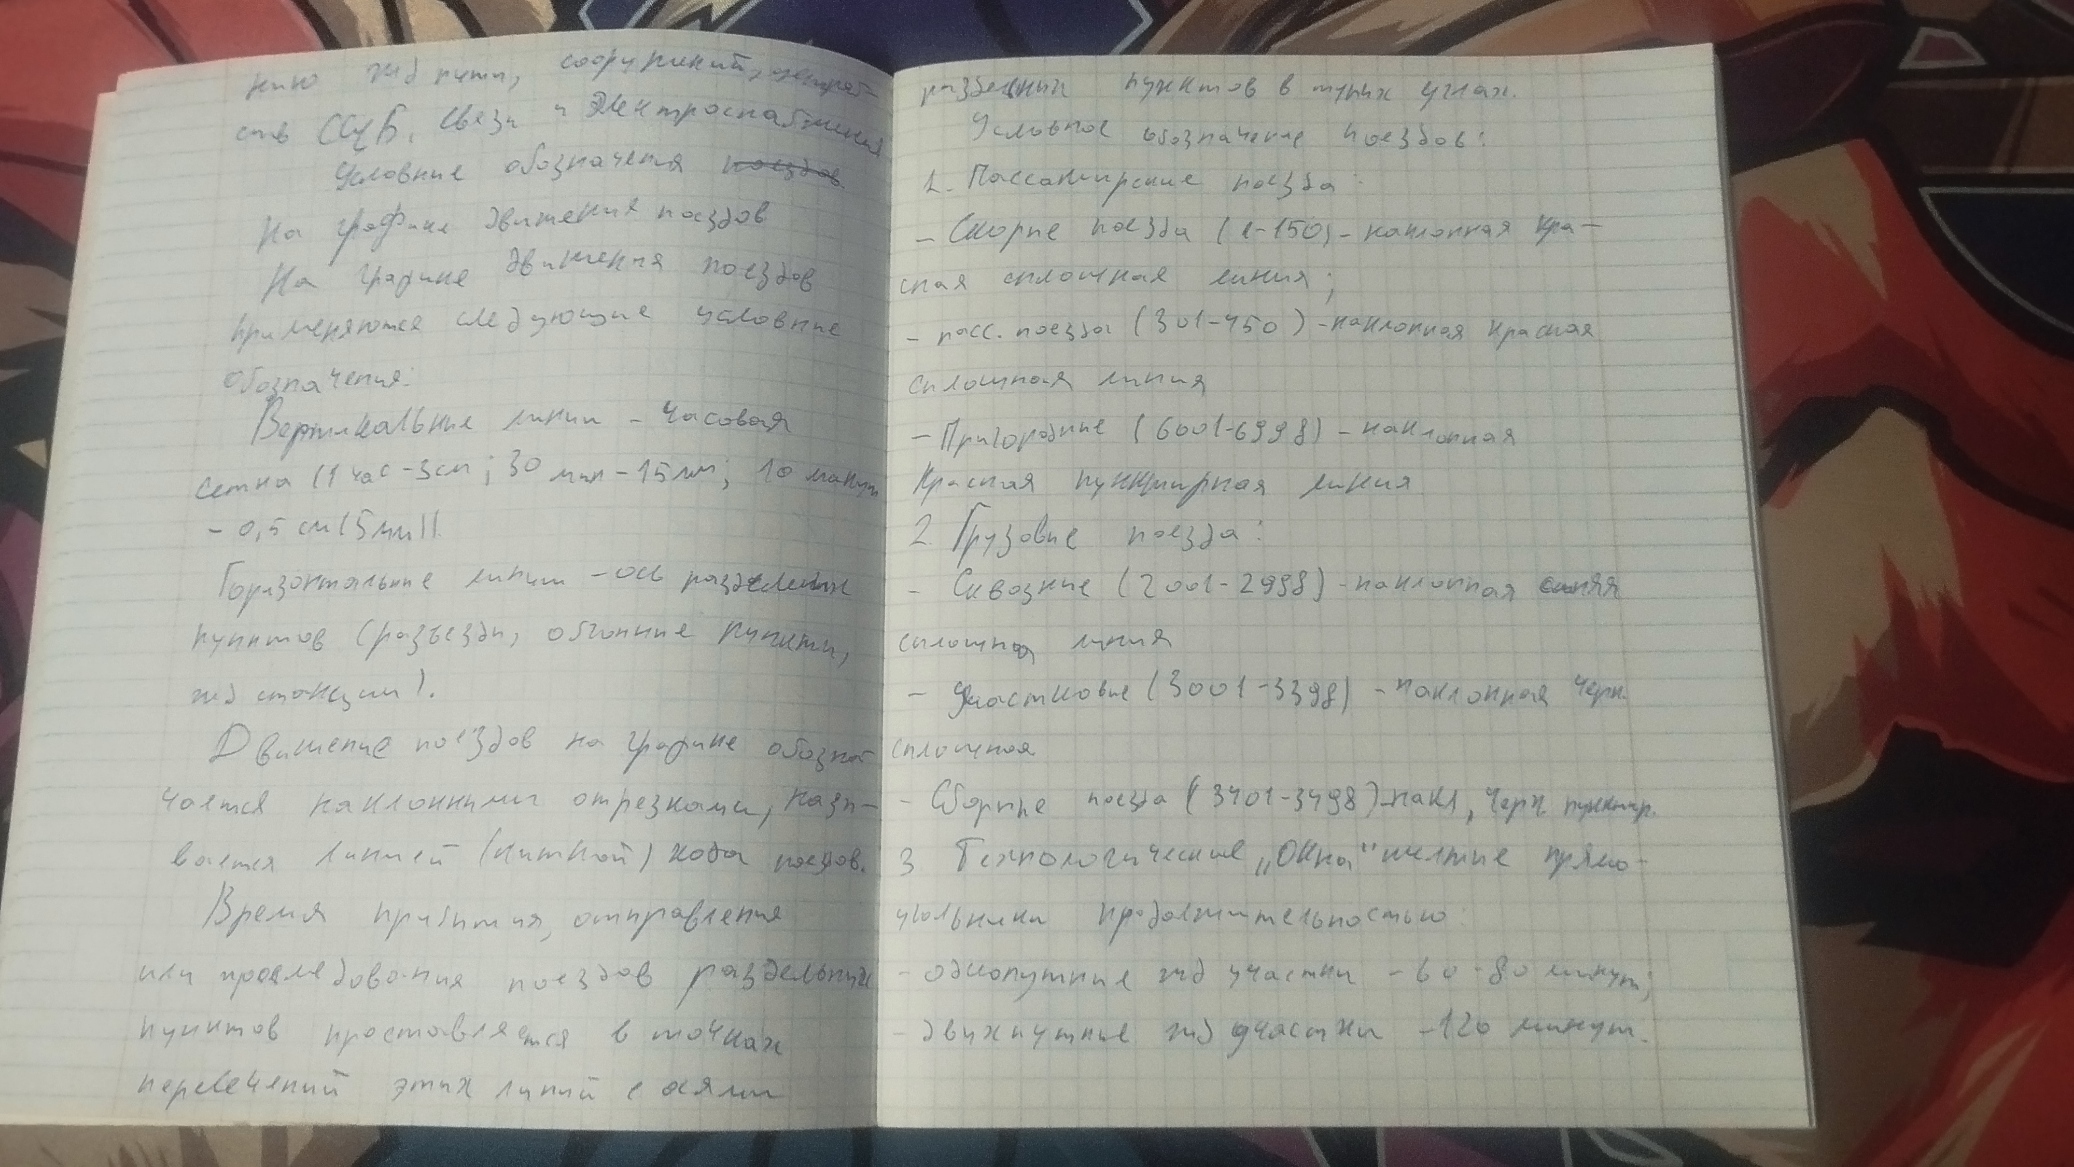 нию жд пути, сооружений, устройств
ств СЦБ, связи и электроснабжения
Условные обозначения поездов
на графике движения поездов
На графике движения поездов
применяются следующие условные
обозначения:
Вертикальные линии - часовая
сетка (1 час - 3 см; 30 мин - 15 мм; 10 минут
- 0,5 см (5 мм)).
Горизонтальные линии - ось раздельных
пунктов (разъезды, обгонные пункты,
жд станции).
Движение поездов на графике обозна-
чается наклонными отрезками, назы-
вается линией (ниткой) хода поездов.
Время прибытия, отправления
или проследования поездов раздельных
пунктов проставляется в точках
пересечений этих линий с осями
раздельных пунктов в тупых углах.
Условное обозначение поездов:
1. Пассажирские поезда:
- Скорые поезда (1-150) - наклонная кра-
сная сплошная линия;
- пасс. поезда (301-450) - наклонная красная
сплошная линия
- Пригородные (6001-6998) - наклонная
красная пунктирная линия
2. Грузовые поезда:
- Сквозные (2001-2998) - наклонная синяя
сплошная линия
- Участковые (3001-3398) - наклонная черн.
сплошная
- Сборные поезда (3401-3498) - накл, черн. пунктир.
3 Технологические „Окна" желтые прямо-
угольники продолжительностью:
- однопутные жд участки - 60-80 минут;
- двухпутные жд участки - 120 минут.